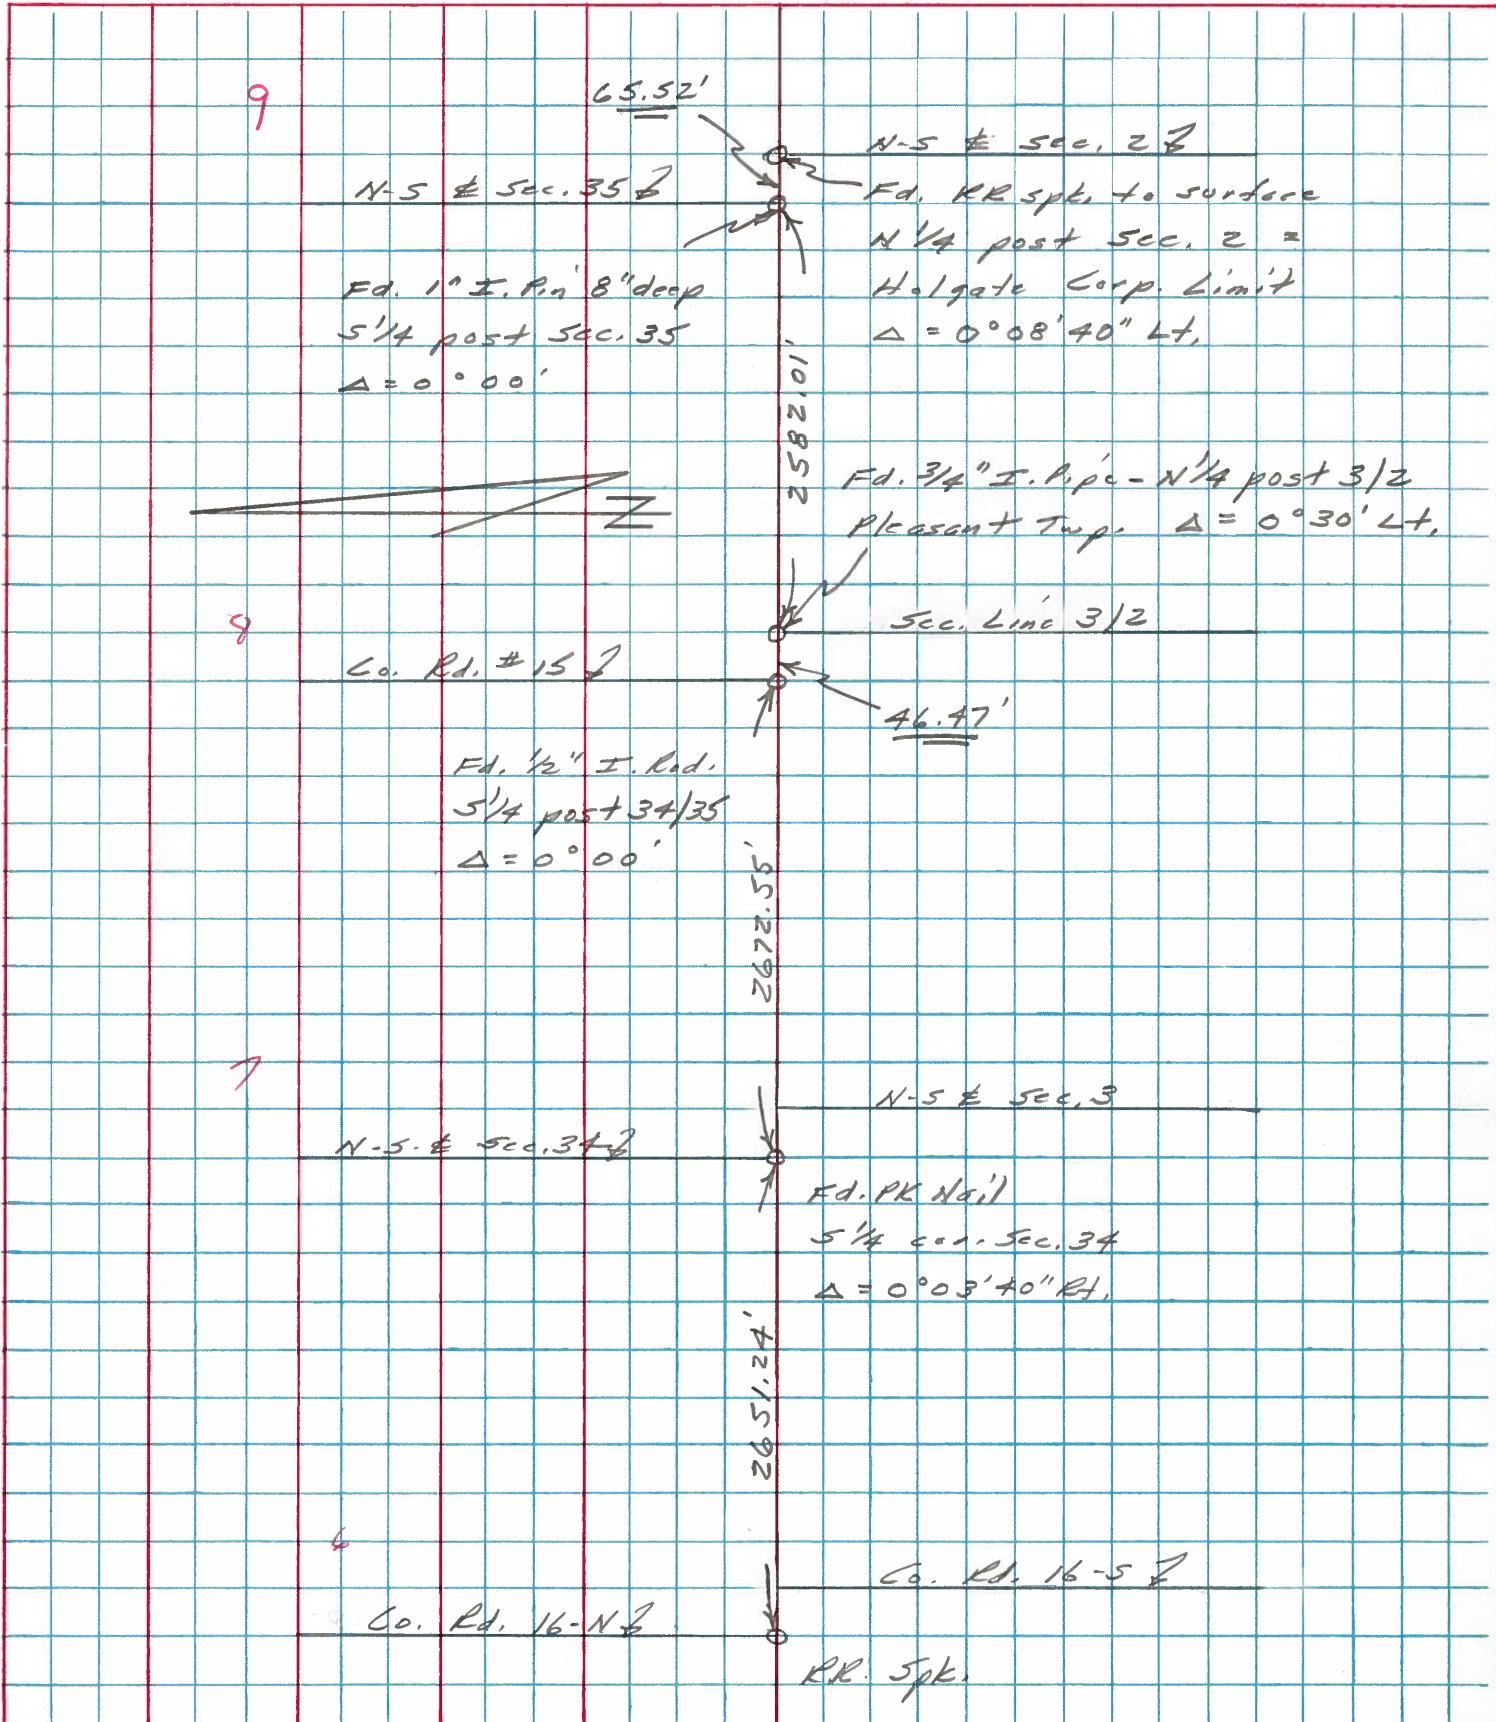 9
65.52'
N-S ℄ Sec. 2
N-S ℄ Sec. 35
Fd. RR spk. to surface
N 1/4 post Sec. 2 =
Holgate Corp. Limit
Δ = 0°08'40" Lt.
Fd. 1" I. Pin 8" deep
S 1/4 post Sec. 35
Δ = 0°00'
2582.01'
N
Fd. 3/4" I. Pipe - N 1/4 post 3/2
Pleasant Twp. Δ = 0°30' Lt.
8
Sec. Line 3/2
Co. Rd. #15
46.47'
Fd. 1/2" I. Rod.
S 1/4 post 34/35
Δ = 0°00'
2672.55'
7
N-S ℄ Sec. 3
N-S ℄ Sec. 34
Fd. PK Nail
S 1/4 cor. Sec. 34
Δ = 0°03'40" Rt.
2651.24'
6
Co. Rd. 16-S
Co. Rd. 16-N
RR. Spk.